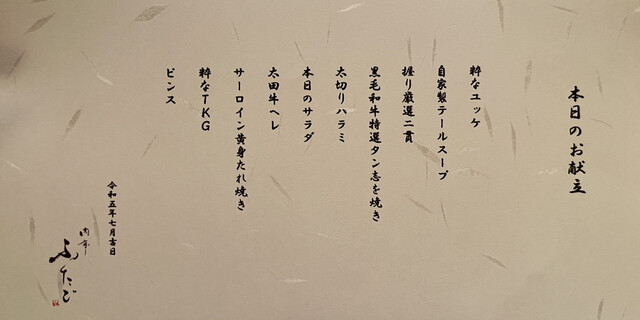 本日のお献立
粋なユッケ
自家製テールスープ
握り厳選二貫
黒毛和牛特選タン志を焼き
太切りハラミ
本日のサラダ
太田牛ヘレ
サーロイン黄身たれ焼き
粋なTKG
ピンス
令和五年七月吉日
ふたご